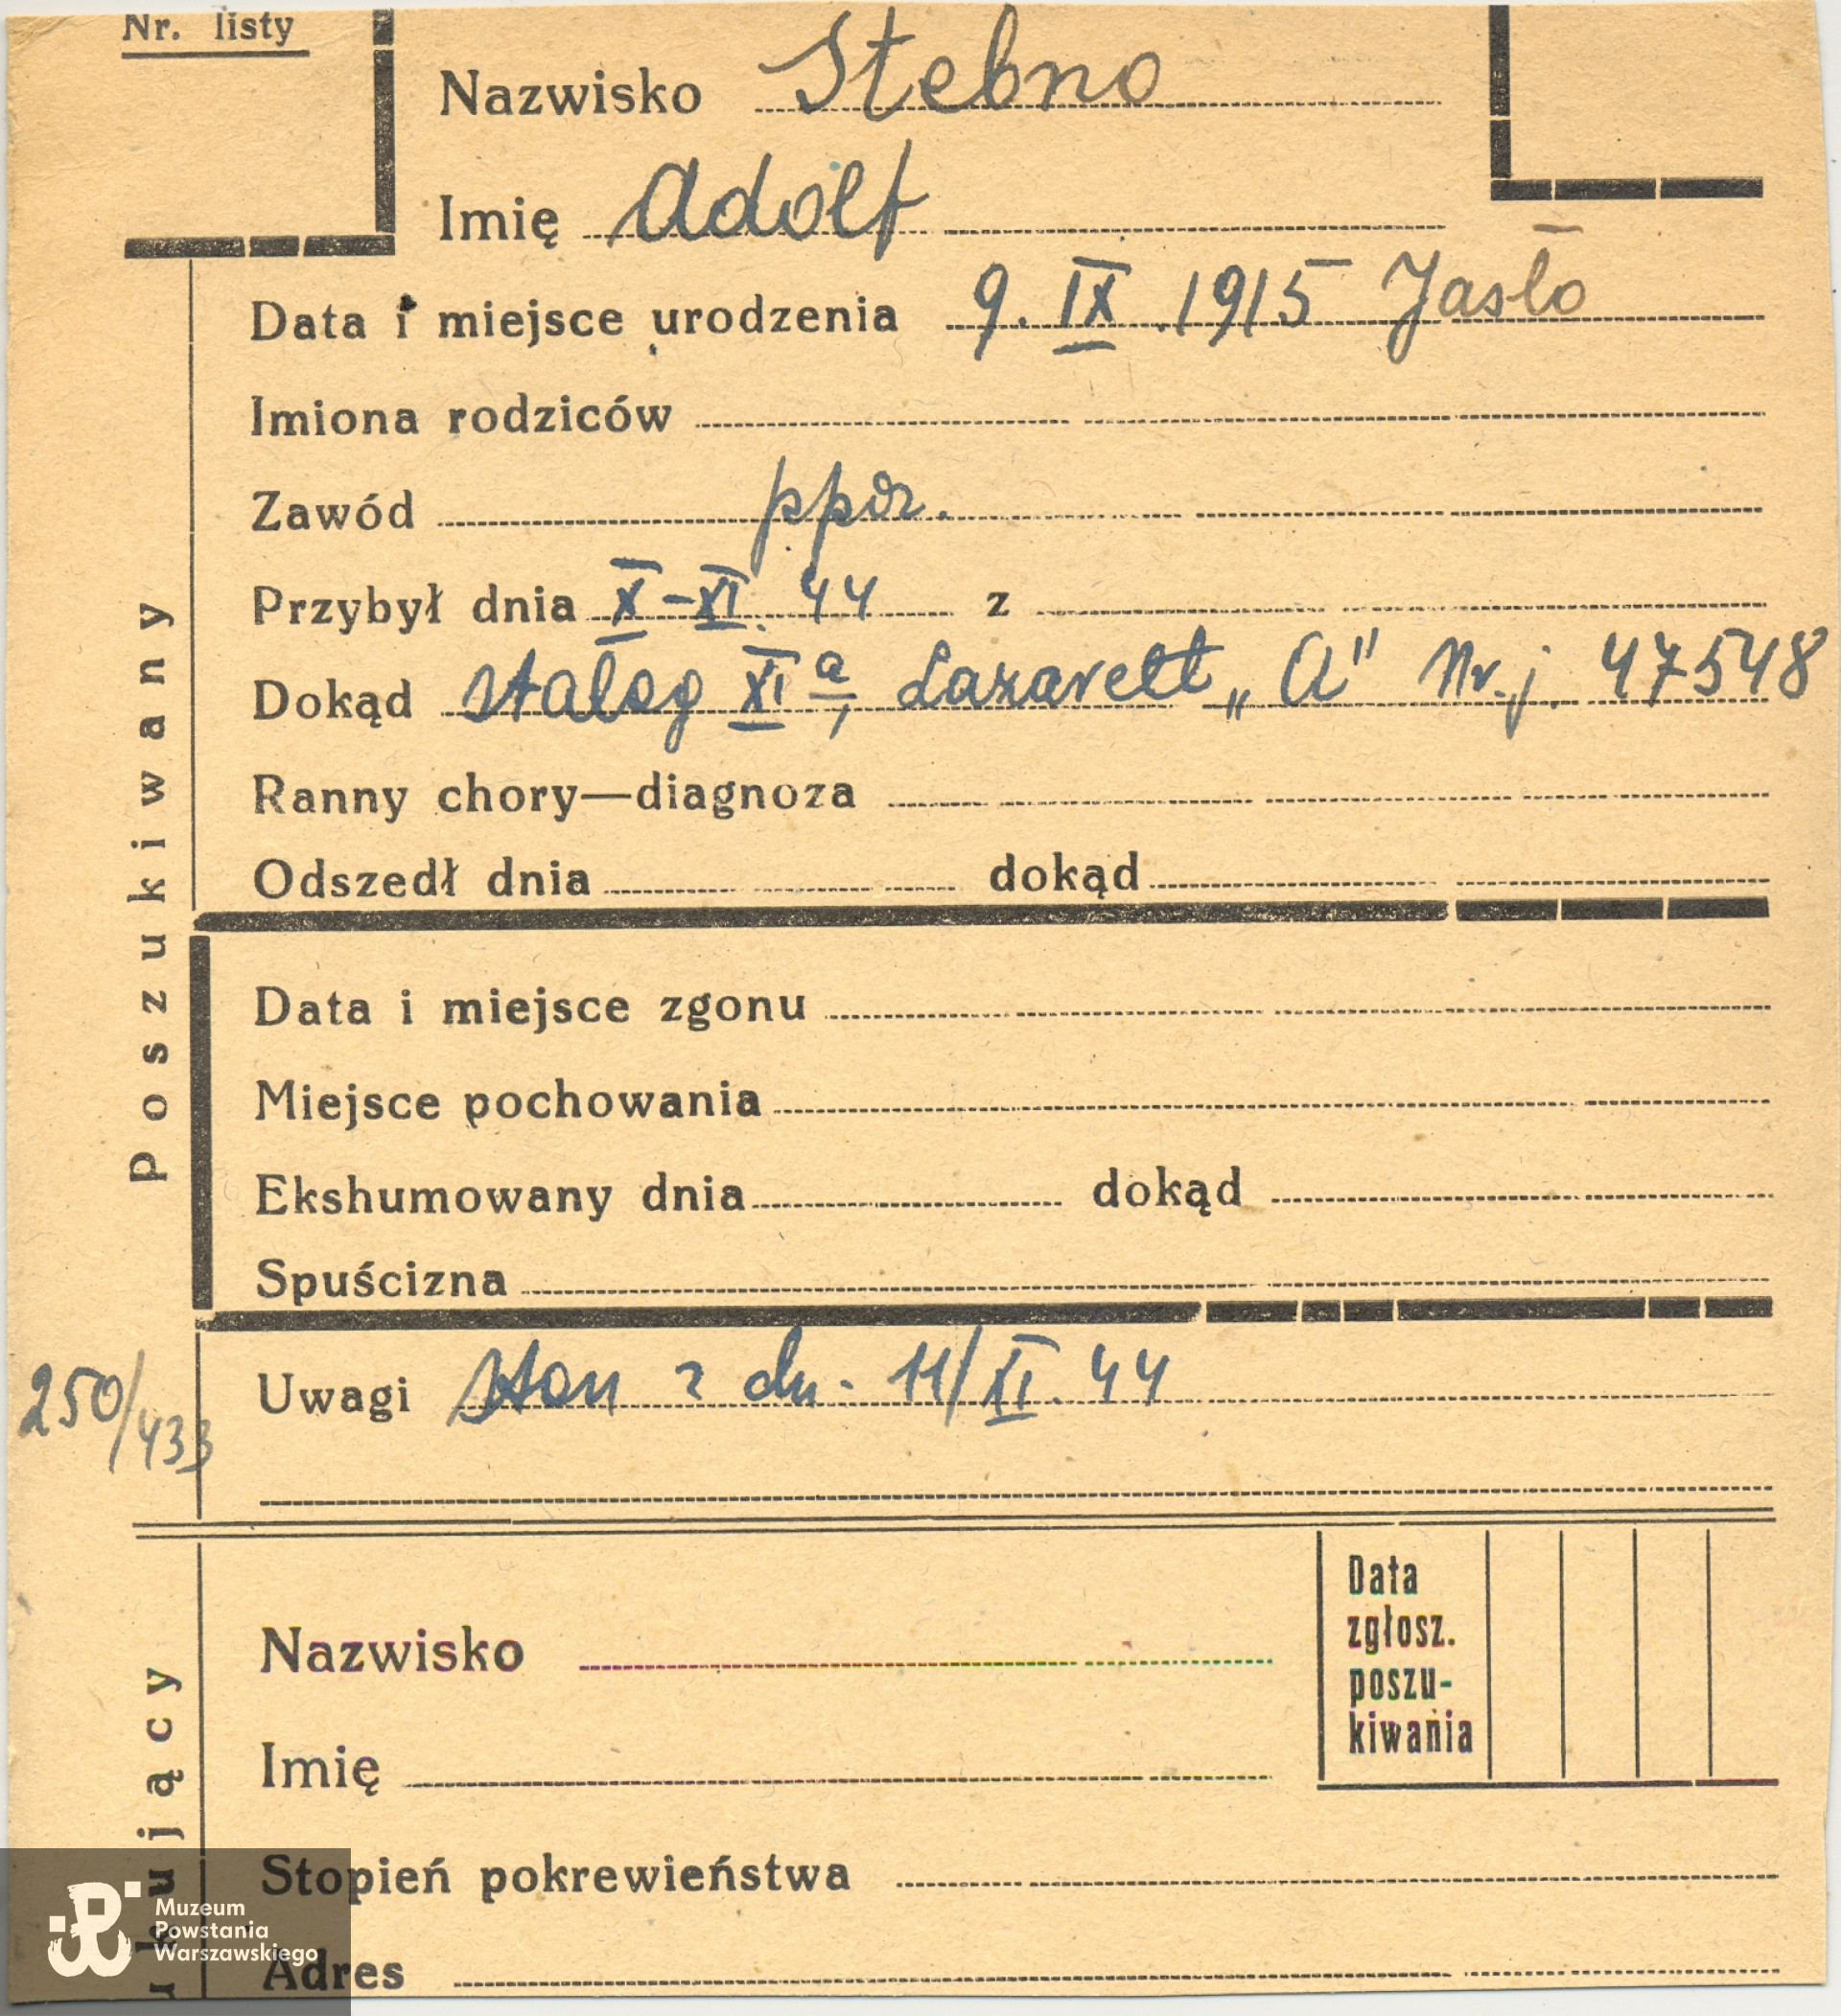 Nr. listy
Nazwisko Stebno
Imię Adolf
Data i miejsce urodzenia 9. IX. 1915 Jasło
Imiona rodziców
Zawód ppor.
Przybył dnia X-XI. 44 z
Dokąd Stalag XI a, Lazarett „A" Nr. j. 47548
Ranny chory—diagnoza
Odszedł dnia dokąd
Poszukiwany
Data i miejsce zgonu
Miejsce pochowania
Ekshumowany dnia dokąd
Spuścizna
250/433
Uwagi Stan z dn. 11/XI. 44
Data
zgłosz.
poszu-
kiwania
Nazwisko
Imię
ukujący
Stopień pokrewieństwa
Adres
Muzeum
Powstania
Warszawskiego